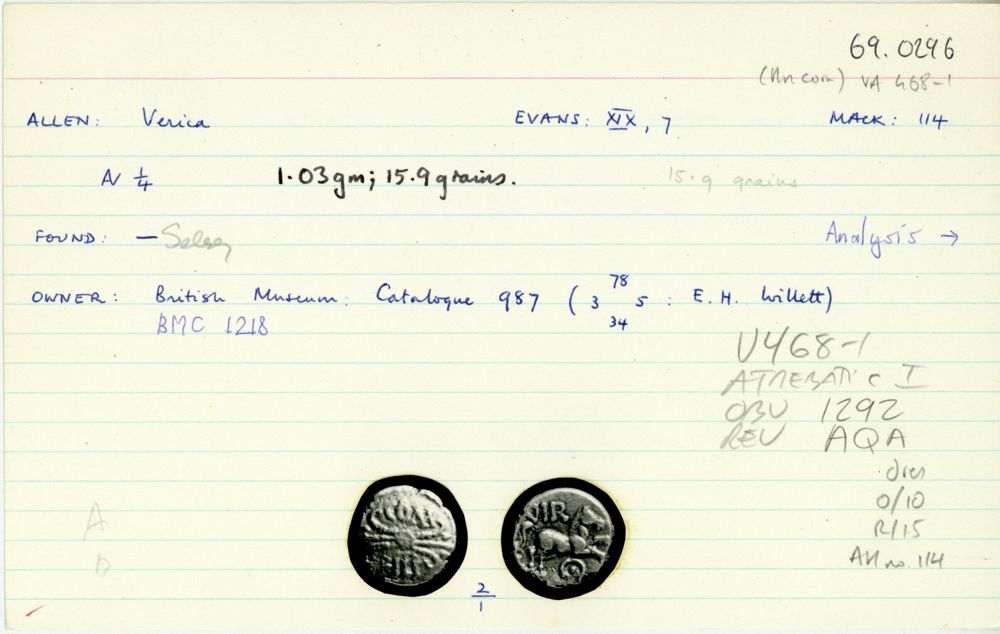 69.0296
(Ancom) VA 468-1
ALLEN: Verica EVANS: XIX, 7 MACK: 114
N 1/4 1.03gm; 15.9grains. 15.9 grains
FOUND: — Selsey Analysis →
OWNER: British Museum: Catalogue 987 (3 78/34 5 : E.H. Willett)
BMC 1218
V468-1
ATREBATIC I
OBV 1292
REV AQA
dies
O/10
R/15
All no. 114
A
D
COM F
VIR
2/1